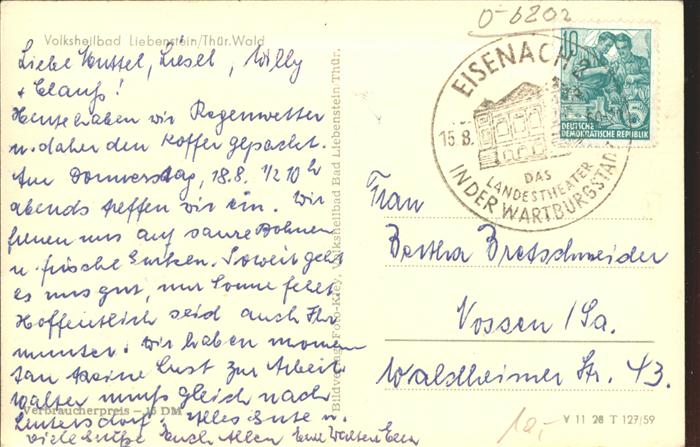 Volksheilbad Liebenstein/Thür. Wald
Liebe Muttel, Liesel, Willy
+ Claus!
Heute haben wir Regenwetter
u. daher den Koffer gepackt.
Am Donnerstag, 18.8. 1/2 10 h
abends treffen wir ein. Wir
freuen uns auf saure Bohnen
u. frische Gurken. Soweit geht
es uns gut, nur Sonne fehlt
Hoffentlich seid auch Ihr
munter. Wir haben momen
tan keine Lust zur Arbeit
Walter muß gleich nach
Alles Gute u.
viele Grüße Euch Allen Eure Walter
Verbraucherpreis – 15 DM
Bildverlag Foto-Krey, Volksheilbad Bad Liebenstein Thür.
0-6202
EISENACH 2
15.8.
DAS
LANDESTHEATER
IN DER WARTBURGSTADT
10
5
DEUTSCHE
DEMOKRATISCHE REPUBLIK
Frau
Bertha Bretschneider
Nossen / Sa.
Waldheimer Str. 43.
10,-
V 11 28 T 127/59